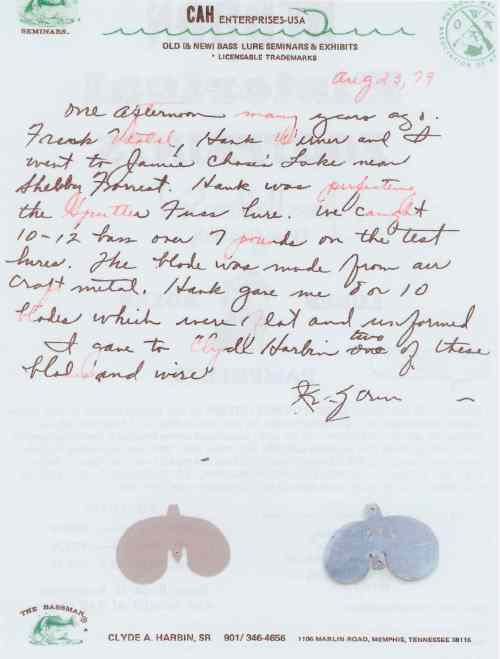 CAH ENTERPRISES-USA
SEMINARS.
OLD (& NEW) BASS LURE SEMINARS & EXHIBITS
* LICENSABLE TRADEMARKS
Aug 23, 79
One afternoon many years ago.
Frank Vestal, Hank Weiner and I
went to Jamie Chase's Lake near
Shelby Forrest. Hank was perfecting
the Sputter Fuss lure. We caught
10-12 bass over 7 pounds on the test
lures. The blade was made from air
craft metal. Hank gave me 8 or 10
blades which were flat and unformed
I gave to Clyde Harbin two one of these
blades and wire
THE BASSMAN
CLYDE A. HARBIN, SR. 901/ 346-4656 1106 MARLIN ROAD, MEMPHIS, TENNESSEE 38116